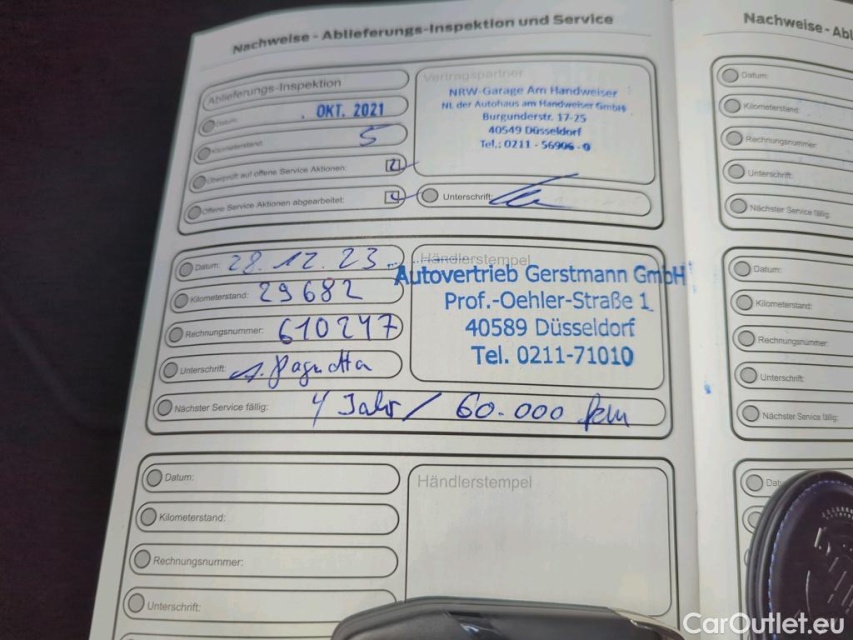 Nachweise - Ablieferungs-Inspektion und Service
Ablieferungs-Inspektion
Datum: . OKT. 2021
Kilometerstand: 5
Überprüft auf offene Service Aktionen:
Offene Service Aktionen abgearbeitet:
Vertragspartner
NRW-Garage Am Handweiser
NL der Autohaus am Handweiser GmbH
Burgunderstr. 17-25
40549 Düsseldorf
Tel.: 0211 - 56906 - 0
Unterschrift:
Datum: 28.12.23
Kilometerstand: 29682
Rechnungsnummer: 610247
Unterschrift:
Nächster Service fällig: 4 Jahr / 60.000 km
Händlerstempel
Autovertrieb Gerstmann GmbH
Prof.-Oehler-Straße 1
40589 Düsseldorf
Tel. 0211-71010
Datum:
Kilometerstand:
Rechnungsnummer:
Unterschrift:
Händlerstempel
Nachweise - Abl
Datum:
Kilometerstand:
Rechnungsnummer:
Unterschrift:
Nächster Service fällig:
Datum:
Kilometerstand:
Rechnungsnummer:
Unterschrift:
Nächster Service fällig:
Dat
CarOutlet.eu